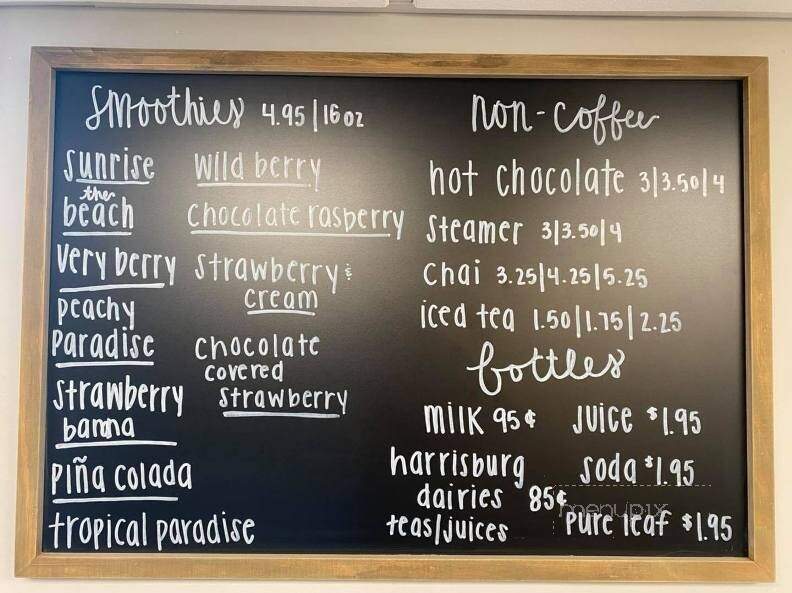 smoothies 4.95|16oz
sunrise
the
beach
very berry
peachy
paradise
strawberry
banna
piña colada
tropical paradise
wild berry
chocolate rasberry
strawberry &
cream
chocolate
covered
strawberry
non-coffee
hot chocolate 3|3.50|4
steamer 3|3.50|4
chai 3.25|4.25|5.25
iced tea 1.50|1.75|2.25
bottles
milk 95¢
harrisburg
dairies 85¢
teas/juices
juice $1.95
soda $1.95
pure leaf $1.95
menupix